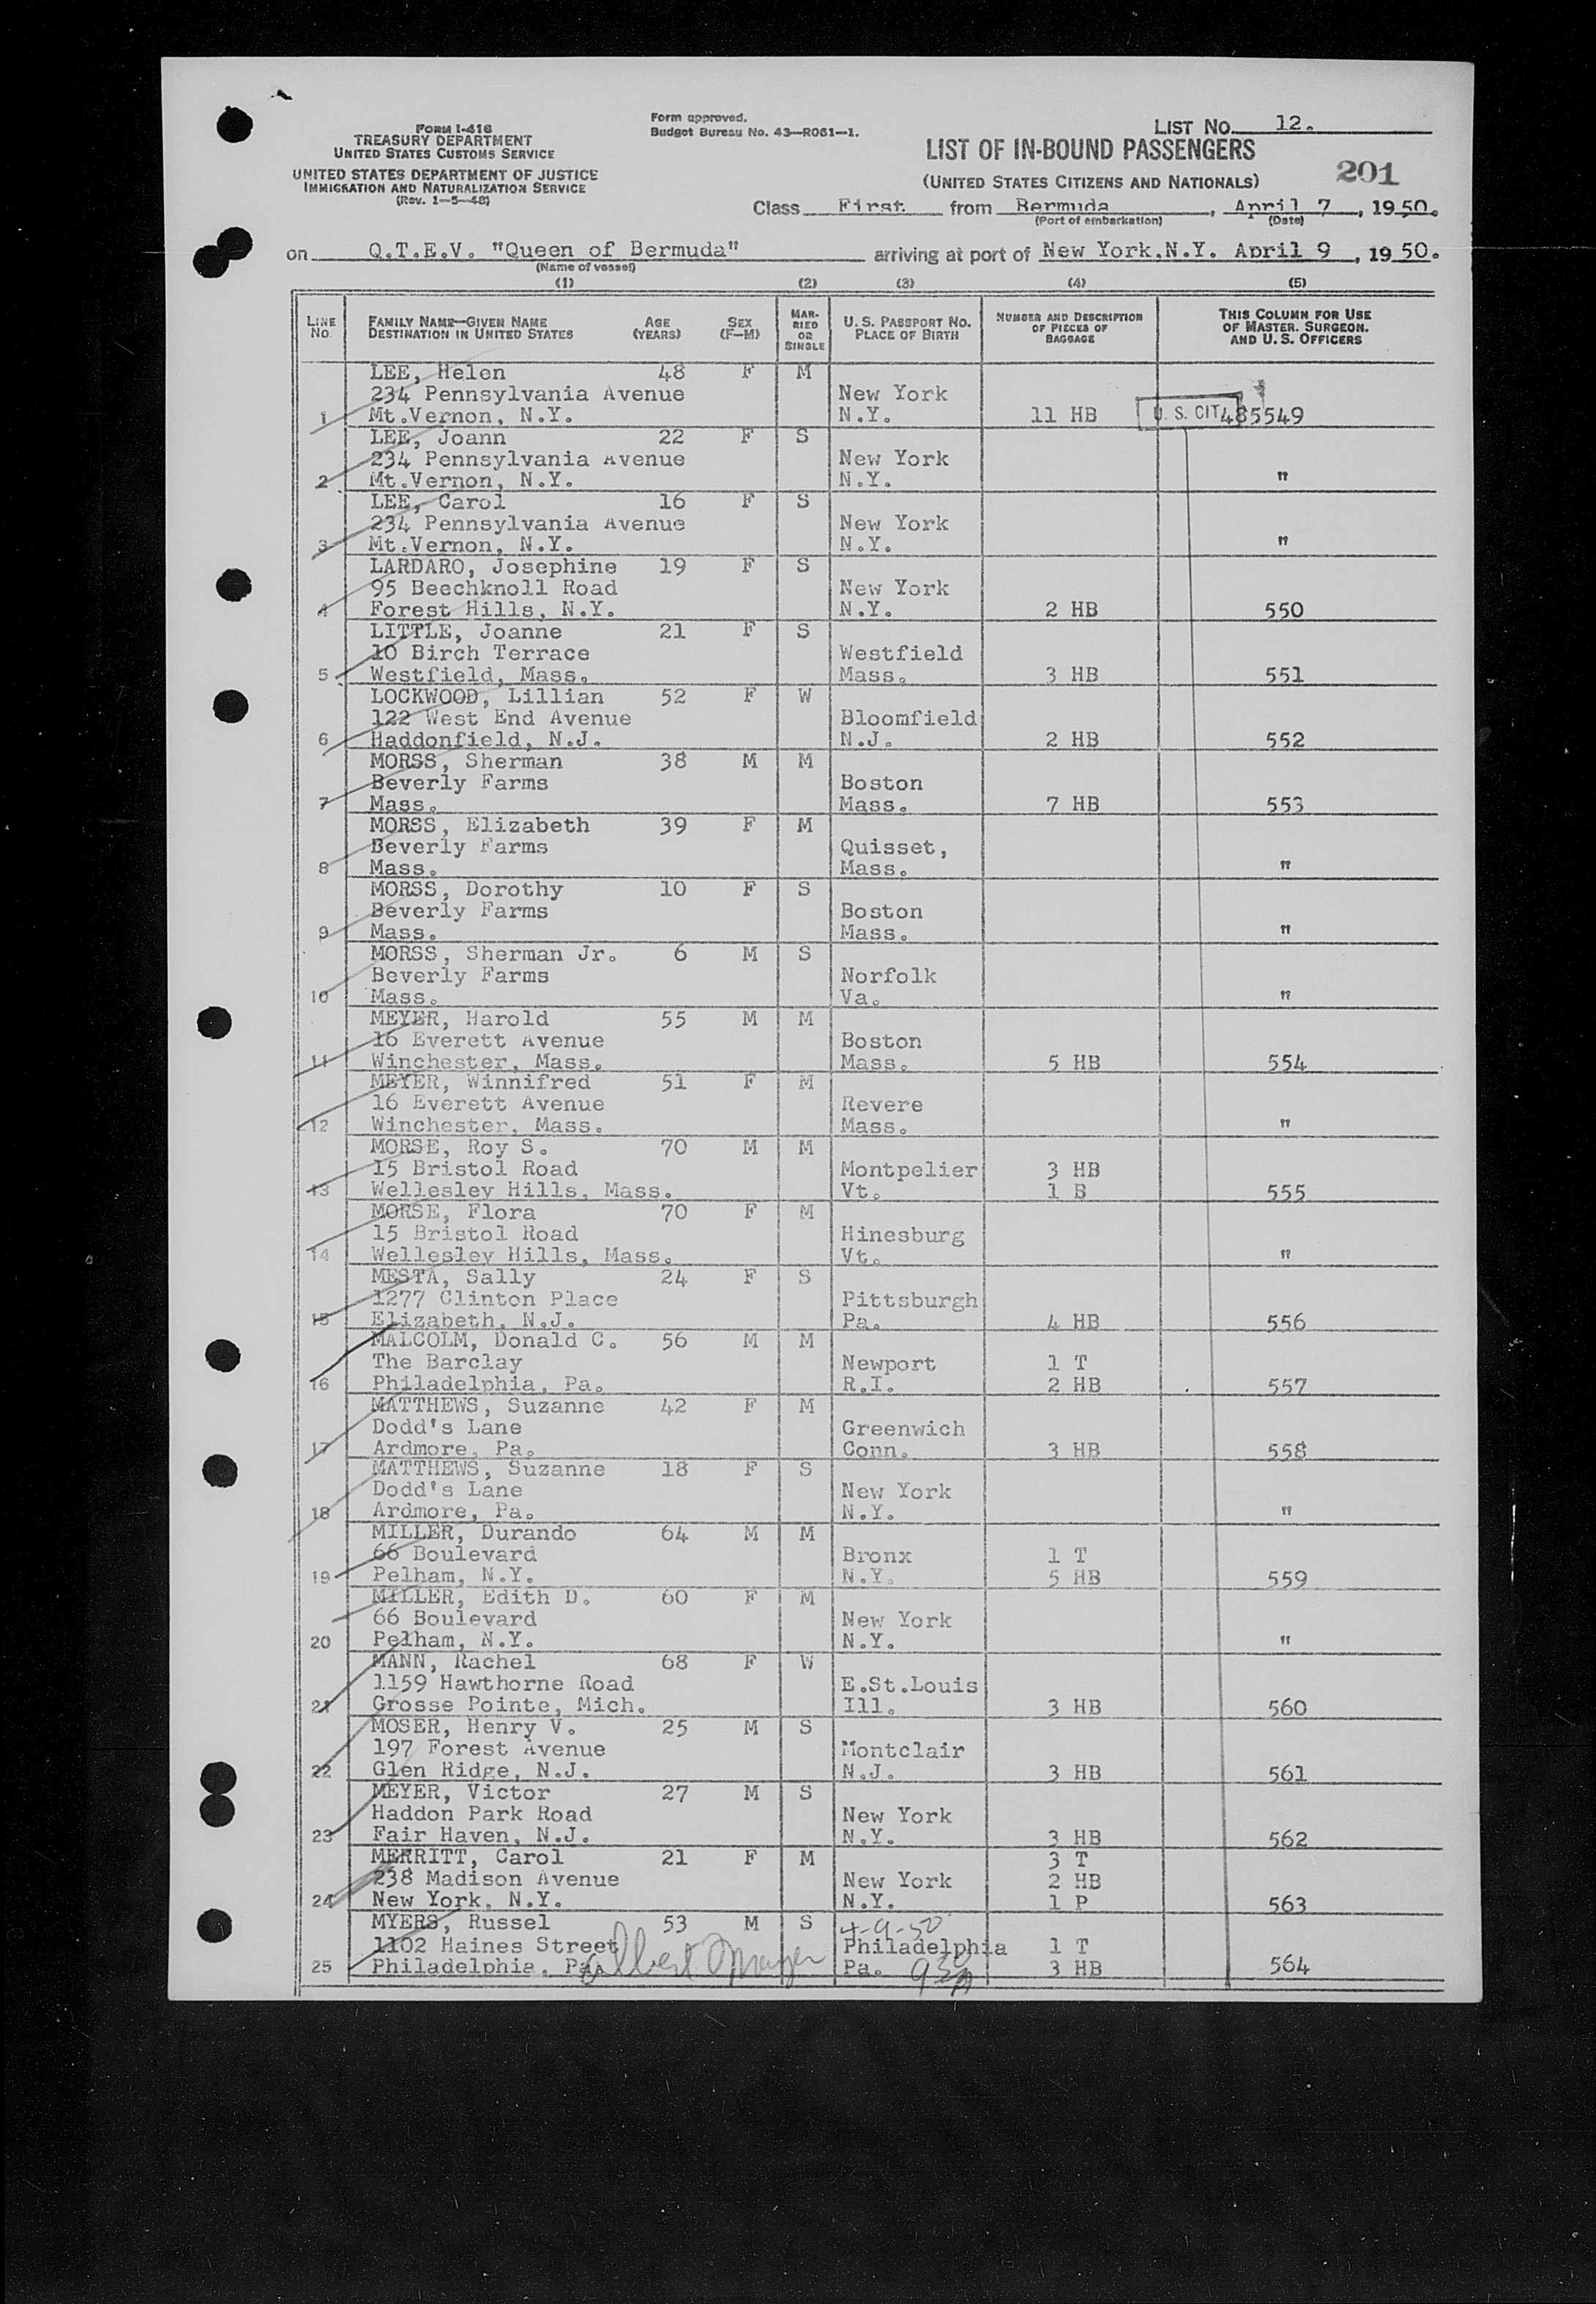 Form I-416
TREASURY DEPARTMENT
UNITED STATES CUSTOMS SERVICE
UNITED STATES DEPARTMENT OF JUSTICE
IMMIGRATION AND NATURALIZATION SERVICE
(Rev. 1-5-48)
Form approved.
Budget Bureau No. 43—R061—1.
LIST NO. 12.
LIST OF IN-BOUND PASSENGERS
(UNITED STATES CITIZENS AND NATIONALS)
201
Class First from Bermuda, April 7, 1950.
(Port of embarkation) (Date)
on Q.T.E.V. "Queen of Bermuda" arriving at port of New York.N.Y. April 9, 1950.
(Name of vessel)
(1) (2) (3) (4) (5)
LINE NO. FAMILY NAME—GIVEN NAME DESTINATION IN UNITED STATES AGE (YEARS) SEX (F—M) MARRIED OR SINGLE U. S. PASSPORT NO. PLACE OF BIRTH NUMBER AND DESCRIPTION OF PIECES OF BAGGAGE THIS COLUMN FOR USE OF MASTER. SURGEON. AND U. S. OFFICERS
LEE, Helen 48 F M
234 Pennsylvania Avenue New York
1 Mt.Vernon, N.Y. N.Y. 11 HB U. S. CIT 485549
LEE, Joann 22 F S
234 Pennsylvania Avenue New York
2 Mt.Vernon, N.Y. N.Y. "
LEE, Carol 16 F S
234 Pennsylvania Avenue New York
3 Mt.Vernon, N.Y. N.Y. "
LARDARO, Josephine 19 F S
95 Beechknoll Road New York
4 Forest Hills, N.Y. N.Y. 2 HB 550
LITTLE, Joanne 21 F S
10 Birch Terrace Westfield
5 Westfield, Mass. Mass. 3 HB 551
LOCKWOOD, Lillian 52 F W
122 West End Avenue Bloomfield
6 Haddonfield, N.J. N.J. 2 HB 552
MORSS, Sherman 38 M M
Beverly Farms Boston
7 Mass. Mass. 7 HB 553
MORSS, Elizabeth 39 F M
Beverly Farms Quisset,
8 Mass. Mass. "
MORSS, Dorothy 10 F S
Beverly Farms Boston
9 Mass. Mass. "
MORSS, Sherman Jr. 6 M S
Beverly Farms Norfolk
10 Mass. Va. "
MEYER, Harold 55 M M
16 Everett Avenue Boston
11 Winchester, Mass. Mass. 5 HB 554
MEYER, Winnifred 51 F M
16 Everett Avenue Revere
12 Winchester, Mass. Mass. "
MORSE, Roy S. 70 M M
15 Bristol Road Montpelier 3 HB
13 Wellesley Hills, Mass. Vt. 1 B 555
MORSE, Flora 70 F M
15 Bristol Road Hinesburg
14 Wellesley Hills, Mass. Vt. "
MESTA, Sally 24 F S
1277 Clinton Place Pittsburgh
15 Elizabeth, N.J. Pa. 4 HB 556
MALCOLM, Donald C. 56 M M
The Barclay Newport 1 T
16 Philadelphia, Pa. R.I. 2 HB 557
MATTHEWS, Suzanne 42 F M
Dodd's Lane Greenwich
17 Ardmore, Pa. Conn. 3 HB 558
MATTHEWS, Suzanne 18 F S
Dodd's Lane New York
18 Ardmore, Pa. N.Y. "
MILLER, Durando 64 M M
66 Boulevard Bronx 1 T
19 Pelham, N.Y. N.Y. 5 HB 559
MILLER, Edith D. 60 F M
66 Boulevard New York
20 Pelham, N.Y. N.Y. "
MANN, Rachel 68 F W
1159 Hawthorne Road E.St.Louis
21 Grosse Pointe, Mich. Ill. 3 HB 560
MOSER, Henry V. 25 M S
197 Forest Avenue Montclair
22 Glen Ridge, N.J. N.J. 3 HB 561
MEYER, Victor 27 M S
Haddon Park Road New York
23 Fair Haven, N.J. N.Y. 3 HB 562
MERRITT, Carol 21 F M 3 T
238 Madison Avenue New York 2 HB
24 New York, N.Y. N.Y. 1 P 563
MYERS, Russel 53 M S 4-9-50
1102 Haines Street Philadelphia 1 T
25 Philadelphia, Pa. Albert Pa. 3 HB 564